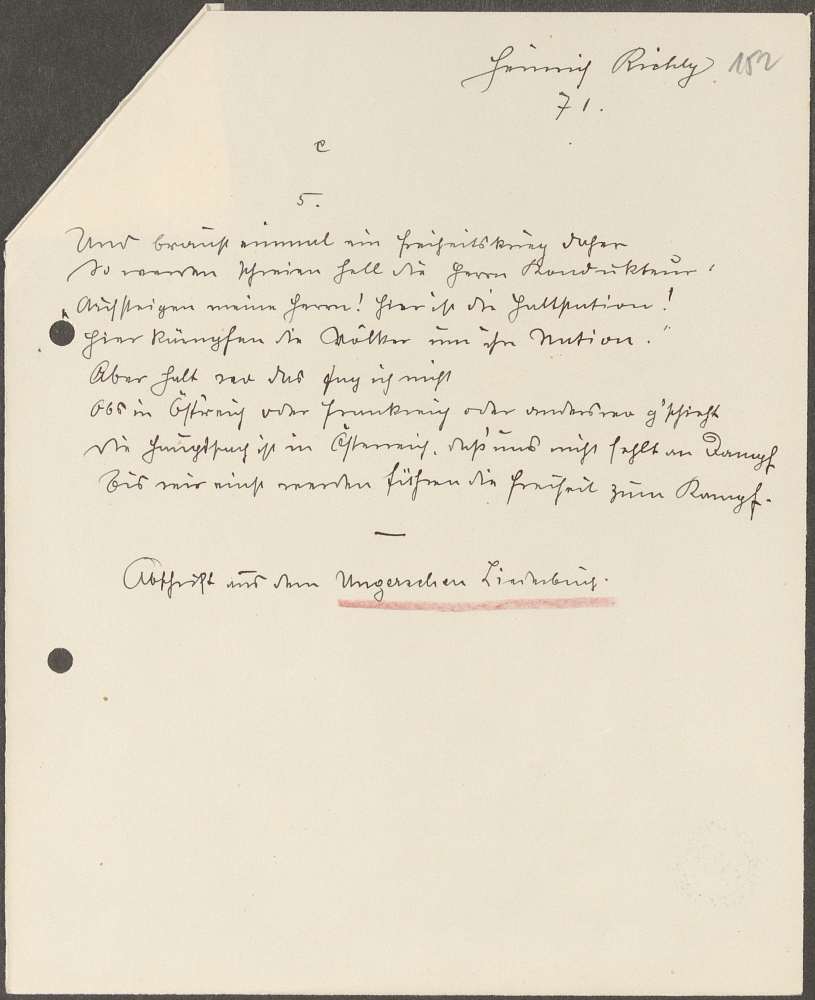 Heinrich Richly 152
71.
c
5.
Und braust einmal ein Freiheitskrieg daher
So werden schreien hell die Herrn Kondukteur,
„Aufsteigen meine Herrn! Hier ist die Haltstation!
Hier kämpfen die Völker um ihre Nation."
Aber halt wo das sag ich nicht
Obs in Östreich oder Frankreich oder anderswo g'schieht
Die Hauptsach ist in Österreich, daß uns nicht fehlt an Dampf
Bis wir einst werden führen die Freiheit zum Kampf.
—
Abschrift aus dem Ungerschen Liederbuch.